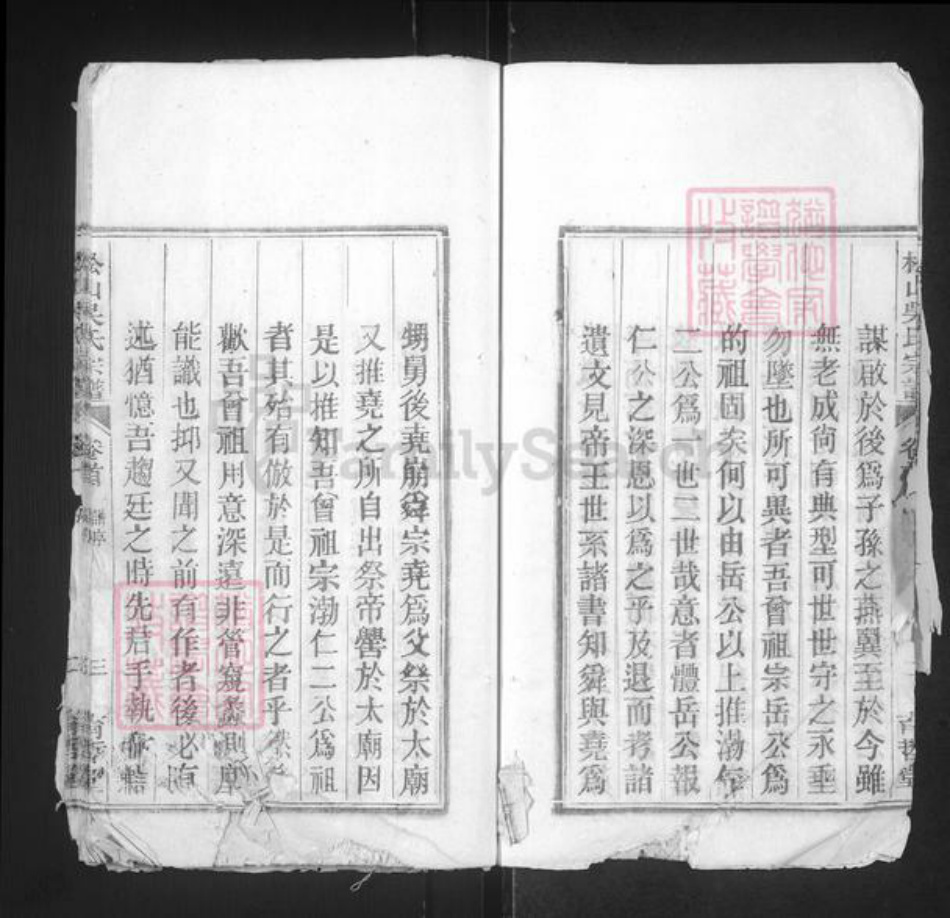 謀啟於後為子孫之燕翼至於今雖
無老成尙有典型可世世守之永垂
勿墜也所可異者吾曾祖宗岳公為
的祖固矣何以由岳公以上推渤
二公為一世二世哉意者體岳公報
仁公之深恩以為之乎及退而考諸
遺文見帝王世系諸書知舜與堯為
甥舅後堯崩舜宗堯為父祭於太廟
又推堯之所自出祭帝嚳於太廟因
是以推知吾曾祖宗渤仁二公為祖
者其殆有倣於是而行之者乎
歡吾曾祖用意深遠非管窺蠡測
能識也抑又聞之前有作者後必有
述猶憶吾趨廷之時先君手執
松山吳氏宗譜
卷首
譜序
三
松山吳氏宗譜
FamilySearch